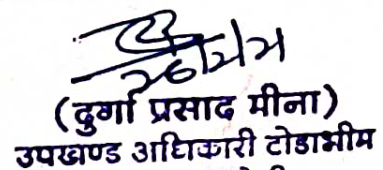 (दुर्गा प्रसाद मीना)
उपखण्ड अधिकारी टोडाभीम